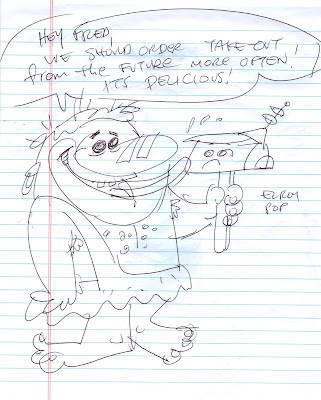 HEY FRED,
WE SHOULD ORDER TAKE OUT
from the FUTURE MORE OFTEN!
ITS DELICIOUS!
ELROY
POP